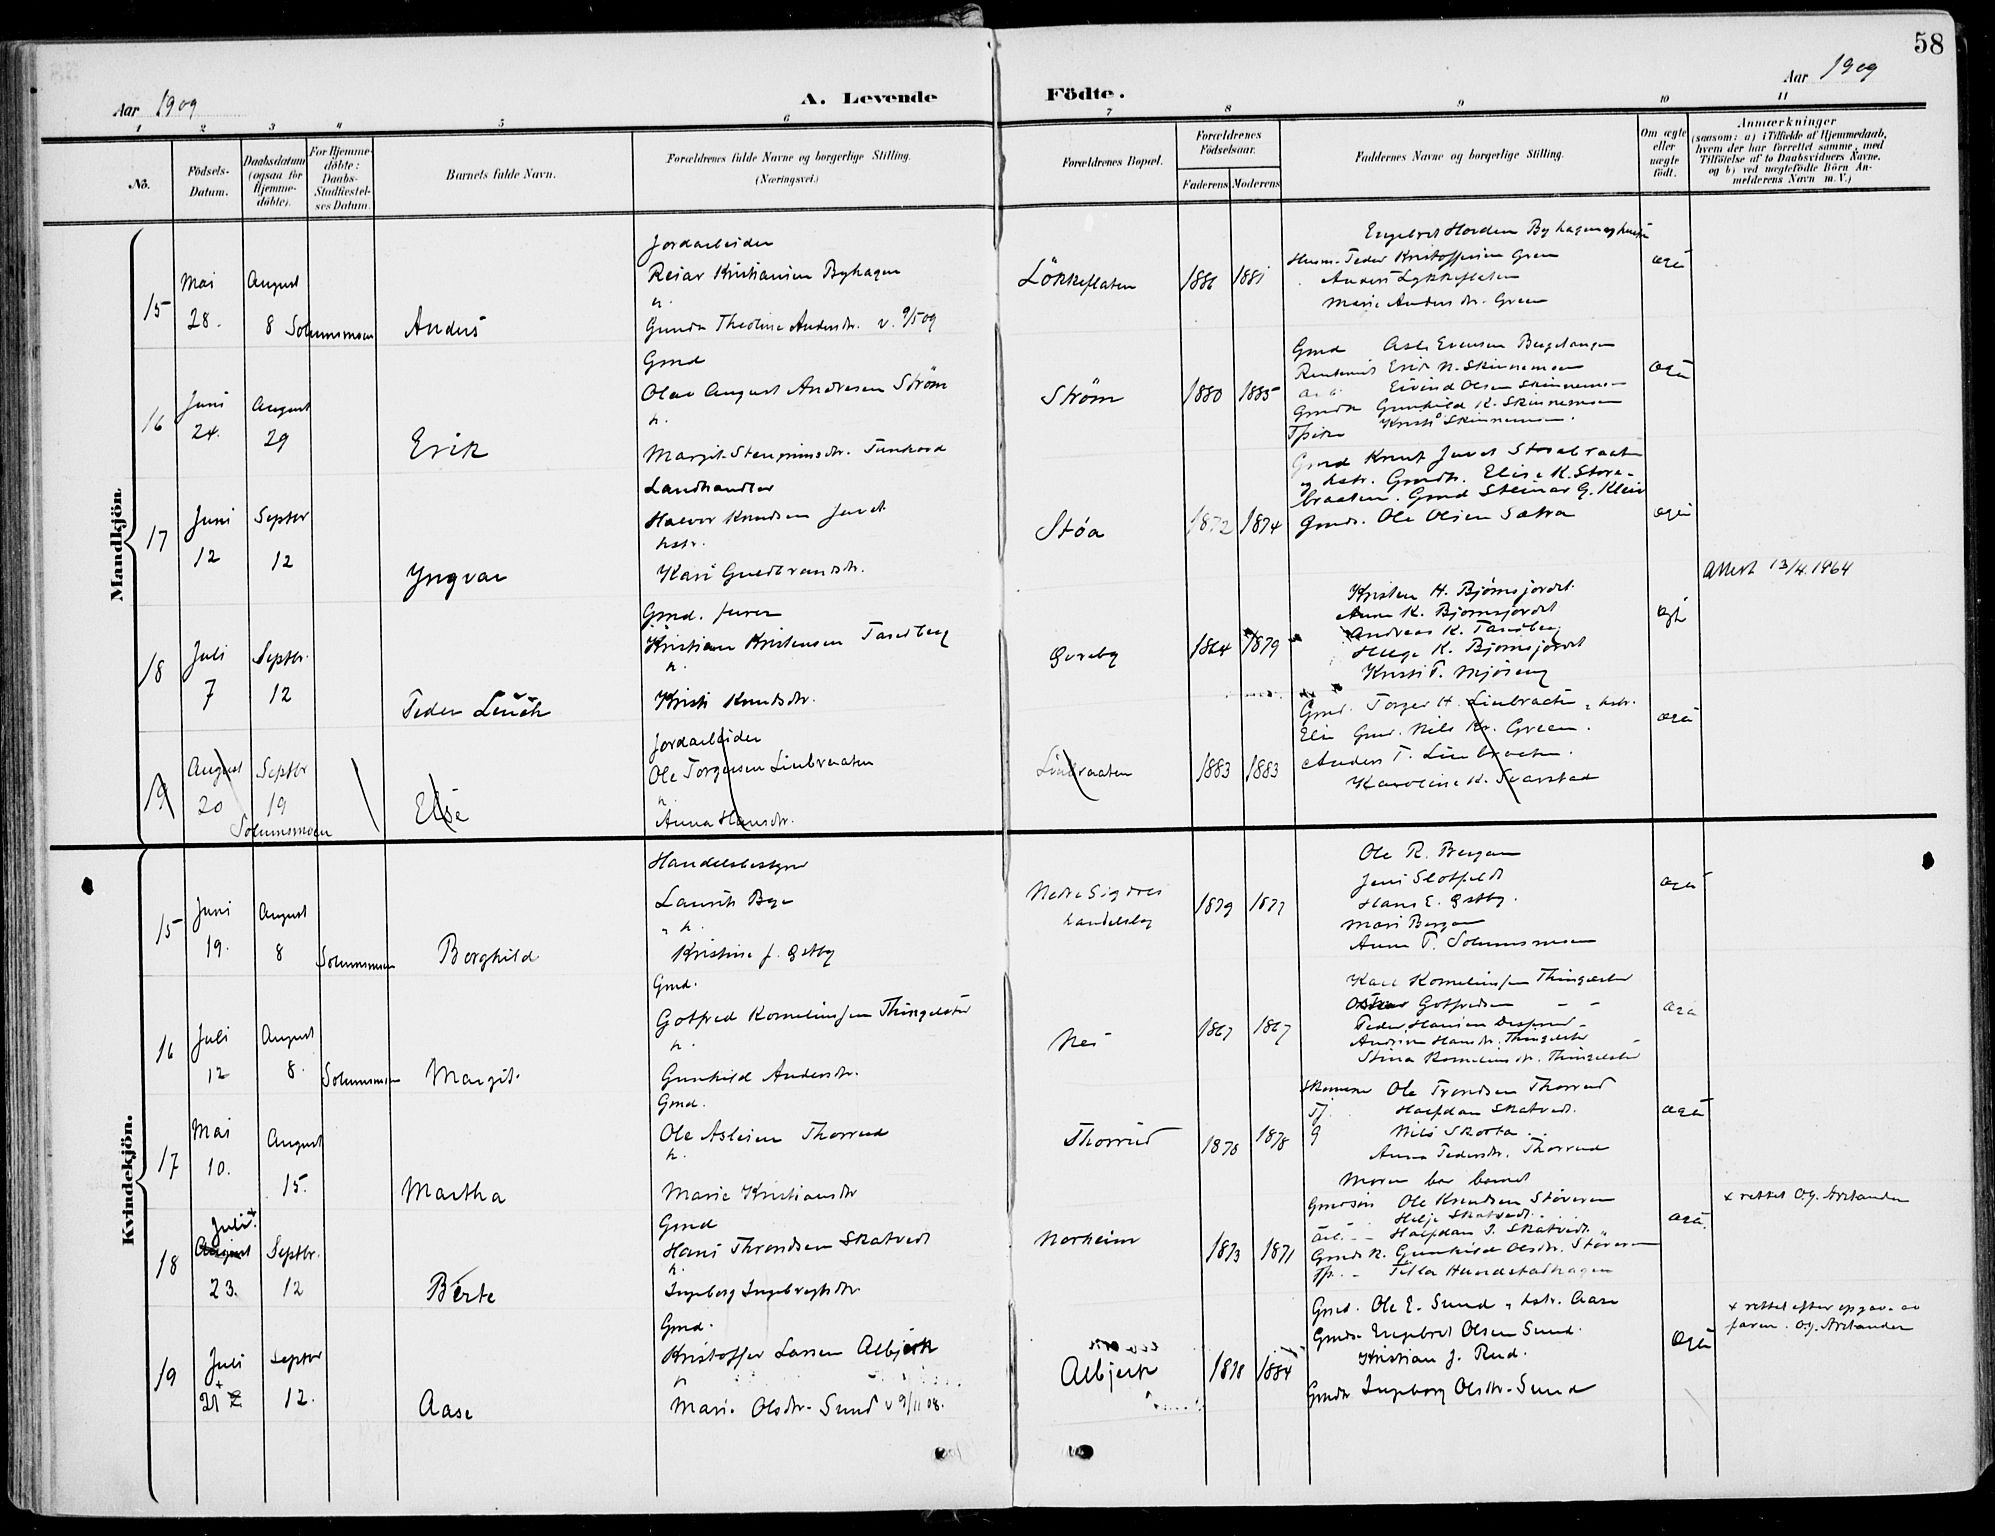 58
Aar 1909
A. Levende Födte.
Aar 1909
1 2 3 4 5 6 7 8 9 10 11
Nô.
Födsels-
Datum.
Daabsdatum
(ogsaa for
Hjemme-
döbte).
For Hjemme-
döbte:
Daabs-
Stadfæstel-
ses Datum.
Barnets fulde Navn.
Forældrenes fulde Navne og borgerlige Stilling.
(Næringsvei.)
Forældrenes Bopæl.
Forældrenes
Födselsaar.
Faderens Moderens
Faddernes Navne og borgerlige Stilling.
Om ægte
eller
uægte
födt.
Anmærkninger
(saasom: a) i Tilfælde af Hjemmedaab,
hvem der har forrettet samme, med
Tilföielse af to Daabsvidners Navne,
og b) ved uægtefödte Börn An-
melderens Navn m. V.)
Mandkjön.
15
Mai
28.
August
8 Solumsmoen
Anders
Jordarbeider
Reiar Kristiansen Byhagen
h.
Gunda Theoline Andersdr. v. 9/5 09
Løkkeflaten
1886 1881
Husm. Peder Kristoffersen Green
Anders Løkkeflaten
Marie Andersdr. Green
16
Juni
24.
August
29
Erik
Gmd
Olav August Andresen Strøm
h.
Margit Stengrimsdr. Tunhovd
Strøm
1880 1885
Gmd Asle Evensen
Erik N. Skinnemoen
Eivind Olsen Skinnemoen
Gunhild K. Skinnemoen
Kristi Skinnemoen.
17
Juni
12
Septbr
12
Yngvar
Landhandler
Halvor Knudsen Juvet
hstr.
Kari Guldbrandsdr.
Støa
1872 1874
Gmd Knut Juvet Storebraaten
og hstr. Gmdtr. Elise K. Store-
braaten. Gmd Steinar G. Kleiv
Gmds. Ole Olsen Sætra
Attest 13/4. 1964
18
Juli
7
Septbr.
12
Peder
Gmd.
Kristian Kristensen Tandberg
h.
Kristi Knudsdr.
1864 1879
Kristen H. Bjørnsjordet
Anne K. Bjørnsjordet
Andreas K. Tandberg
Helge K. Bjørnsjordet
Kristi T.
19
August
20
Septbr
19
Solumsmoen
Else
Jordarbeider
Ole Torgersen Linbraaten
h.
Anna Hansdr.
Linbraaten
1883 1883
Gmd. Torger H. Linbraaten, hstr.
Gmd. Nils Kr. Green.
Anders T. Linbraaten.
Karoline K. Svarstad
Kvindekjön.
15
Juni
19.
August
8
Solumsmoen
Borghild
Handelsbestyrer
Laurits Bye
h.
Kristine J. Østby
Nedre Sigdals
handelslag
1879 1877
Ole R. Bergan
Hans E. Østby.
Mari Bergan
Anne P. Solumsmoen
16
Juli
12
August
8.
Solumsmoen
Margit
Gmd.
Gotfred Korneliussen Thingelstad
h.
Gunhild Andersdr.
Nes
1867 1867
Karl Korneliussen Thingelstad
Gotfredsen
Peder Hansen
Andrine Hansdr. Thingelstad
Stina Korneliusdr. Thingelstad
17
Mai
10.
August
15.
Martha
Gmd.
Ole Aslesen Thorrud
h.
Marie Kristiansdr
Thorrud
1870 1878
Ole Trondsen Thorrud
Tj. Halfdan Skatvedt.
G Nils Skorta
Anna Pedersdr. Thorrud
Moren bar barnet
18
Juli +
August
23.
Septbr.
12
Berte
Gmd
Hans Throndsen Skatvedt
h.
Ingeborg Ingebregtsdtr
Norheim
1873 1871
Gmdsøn Ole Knudsen Støveren
Helje Skatvedt.
Halfdan T. Skatvedt.
Gmds k. Gunhild Olsdr. Støveren
Tilla Hundstadhagen
+ rettet O.g. Arstander
19
Juli
+
21
Septbr
12.
Aase
Gmd.
Kristoffer Larsen Albjerk
h
Mari Olsdtr. Sund v 9/11 08.
Albjerk
1878 1884
Gmd. Ole E. Sund, hstr. Aase
Gmds. Engebret Olsen Sund.
Kristian J. Rud.
Gmdtr Ingeborg Olsdtr. Sund
+ rettet efter opgave av
faren. O.g. Arstander